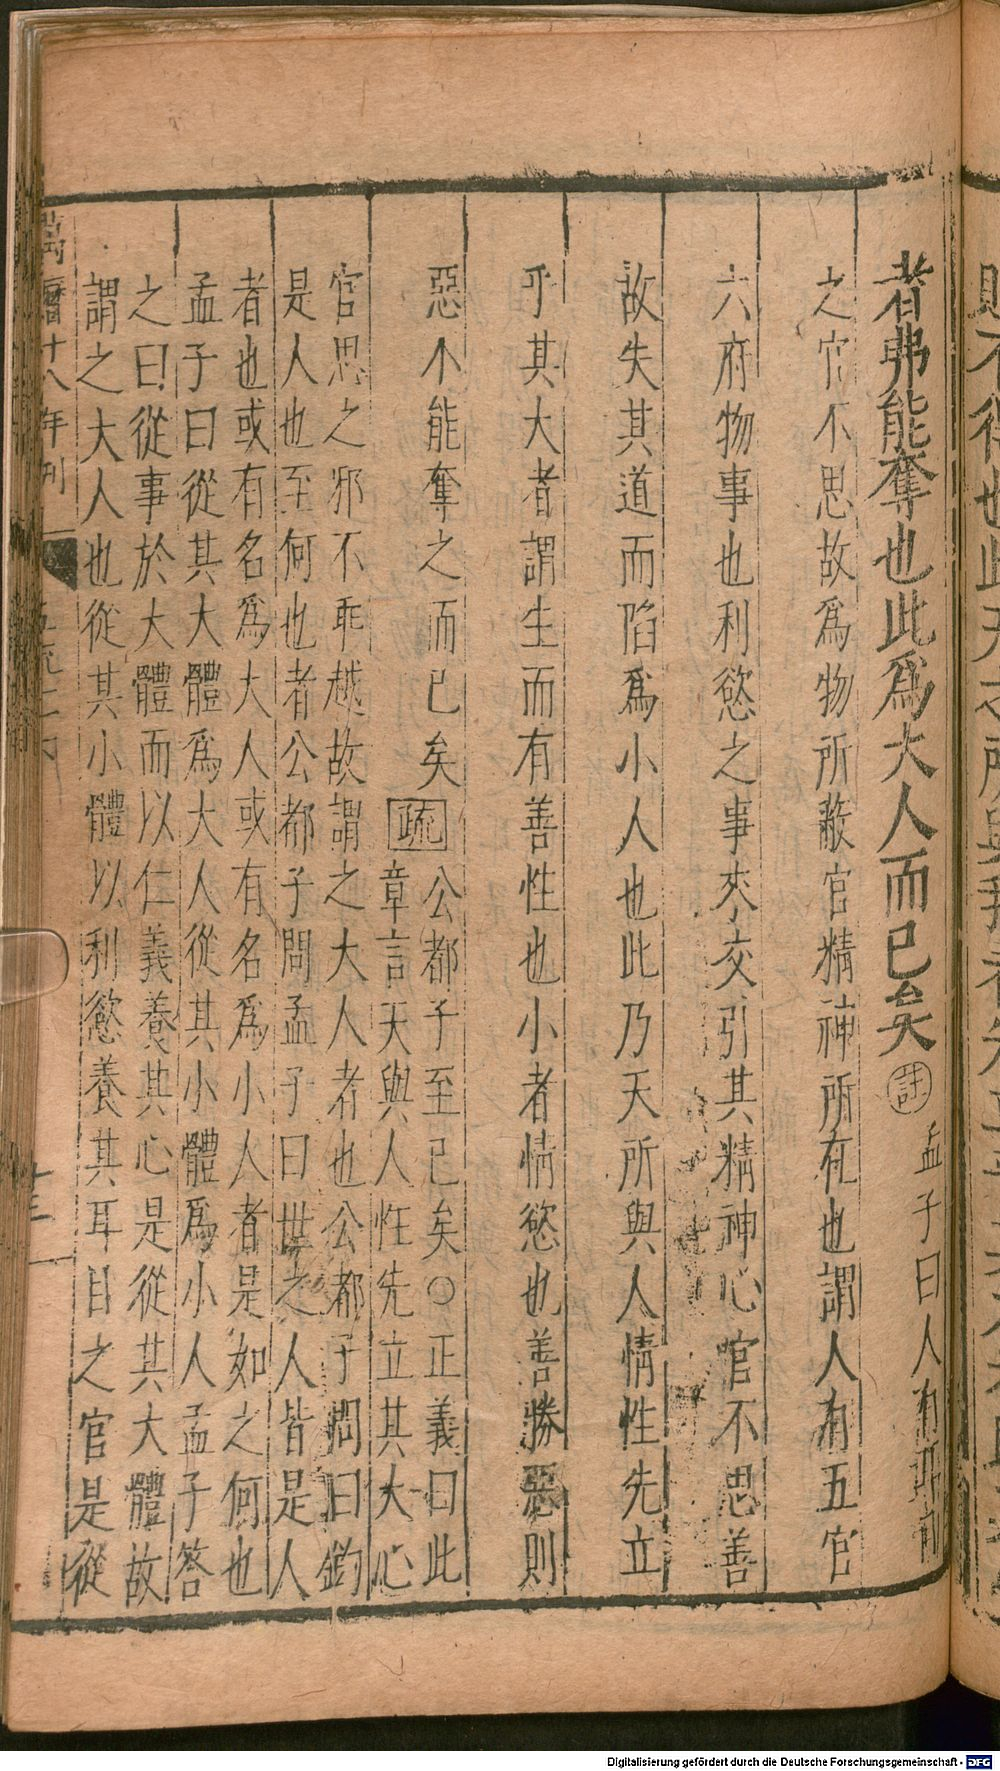 者弗能奪也此爲大人而已矣註孟子曰人有耳目
之官不思故爲物所蔽官精神所在也謂人有五官
六府物事也利慾之事來交引其精神心官不思善
故失其道而陷爲小人也此乃天所與人情性先立
乎其大者謂生而有善性也小者情慾也善勝惡則
惡不能奪之而已矣疏公都子至已矣○正義曰此
章言天與人性先立其大心
官思之邪不乖越故謂之大人者也公都子問曰鈞
是人也至何也者公都子問孟子曰世之人皆是人
者也或有名爲大人或有名爲小人者是如之何也
孟子曰從其大體爲大人從其小體爲小人孟子答
之曰從事於大體而以仁義養其心是從其大體故
謂之大人也從其小體以利慾養其耳目之官是從
萬曆十八年刊
Digitalisierung gefördert durch die Deutsche Forschungsgemeinschaft - DFG